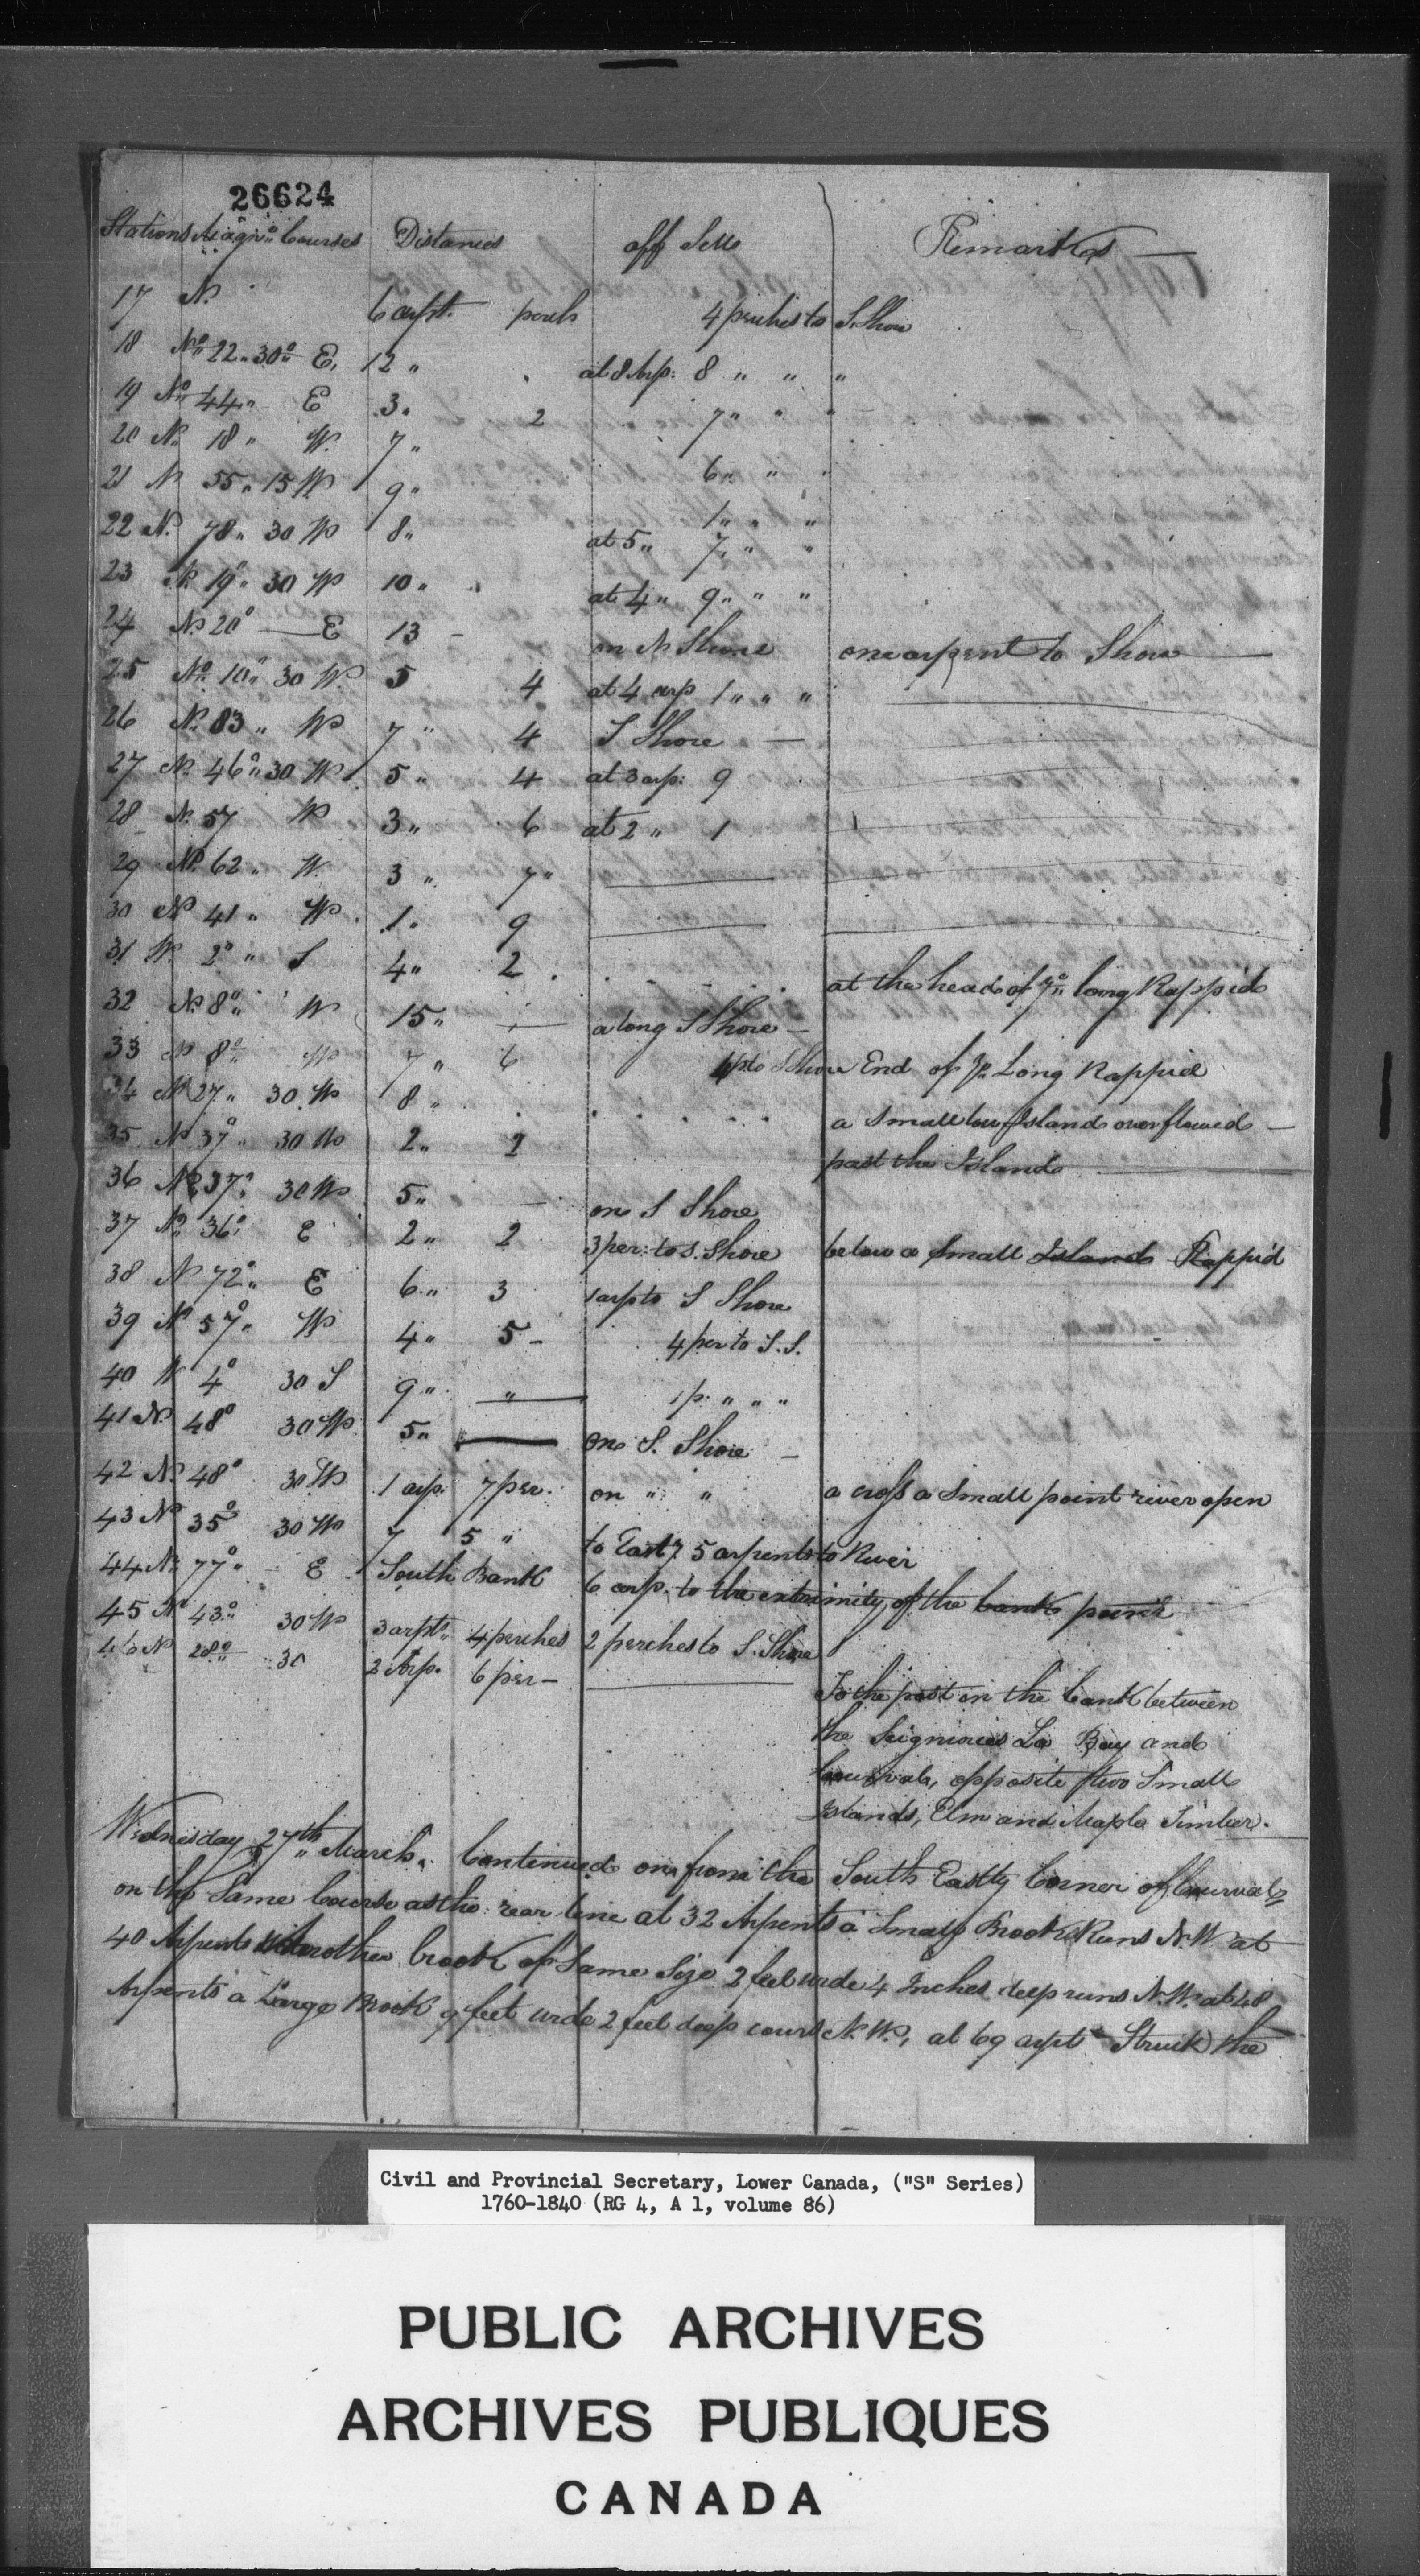 26624
Stations Magn: Courses Distances off Setts Remarks
17 N. 6 arpt. perch 4 perches to S. Shore
18 No 22 „ 30 E. 12 „ at 8 Arp: 8 „ „ „
19 No 44 „ E 3 „ 2 7 „ „ „
20 N. 18 „ W. 7 „ 6 „ „ „
21 N 55 „ 15 W 9 „ 1 „ „ „
22 N. 78 „ 30 W 8 „ at 5 „ 7 „ „ „
23 N. 19 „ 30 W 10 „ at 4 „ 9 „ „ „
24 No 20° — E 13 - on N Shore one arpent to Shore —
25 No 10° 30 W. 5 4 at 4 arp 1 „ „ „
26 N. 83 „ W 7 „ 4 S Shore —
27 N. 46° „ 30 W. 5 „ 4 at 3 arp: 9
28 N. 57 W 3 „ 6 at 2 „ 1
29 N. 62 „ W. 3 „ 7 „
30 N 41 „ W. 1 „ 9
31 W. 2° „ S 4 „ 2 at the head of ye long Rappid
32 N. 8° „ W 15 „ — along S Shore —
33 N 8° W 7 „ 6 4 p to S Shore End of ye Long Rappid
34 N 27 „ 30 W 8 „ a small low Island overflowed —
35 N 37° 30 W 2 „ 2 past the Island
36 No 37° 30 W 5 „ — on S Shore
37 No 36° E 2 „ 2 3 per: to S. Shore below a small Island Rappid
38 N 72° „ E 6 „ 3 1 arp to S Shore
39 N 57° „ W 4 „ 5 - 4 per to S. S.
40 W 4° 30 S 9 „ „ 1 p. „ „ „
41 N. 48° 30 W 5 „ — on S. Shore —
42 N. 48° 30 W 1 arp. 7 per. on „ „ a cross a small point river open
43 N 35° 30 W 7 5 „ to East 5 arpents to River
44 N. 77° „ E South Bank 6 arp. to the extremity of the bank point
45 N 43° „ 30 W 3 arpts „ 4 perches 2 perches to S. Shore
46 N 28° „ 30 2 Arp. 6 per —
To the post on the bank between
the Seigniories La Bay and
Courval, opposite two Small
Islands, Elm and Maple Timber.
Wednesday 27th March. Continued on from the South Eastly Corner of Courval
on the Same Course as the rear line at 32 Arpents a Small Brook Runs N. W. at
40 Arpents Another brook of Same Size 2 feet wide 4 Inches deep runs N. W. at 48
Arpents a Large Brook 9 feet wide 2 feet deep course N. W., at 69 arpts Struck the
Civil and Provincial Secretary, Lower Canada, ("S" Series)
1760-1840 (RG 4, A 1, volume 86)
PUBLIC ARCHIVES
ARCHIVES PUBLIQUES
CANADA